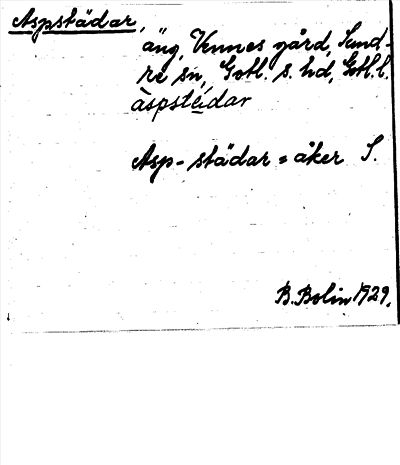 Aspstädar,
äng, Vennes gård, Sund-
re sn, Gotl. s. hd, Gotl. l.
àspstéidar
Asp-städar = åker S.
B. Bolin 1929.